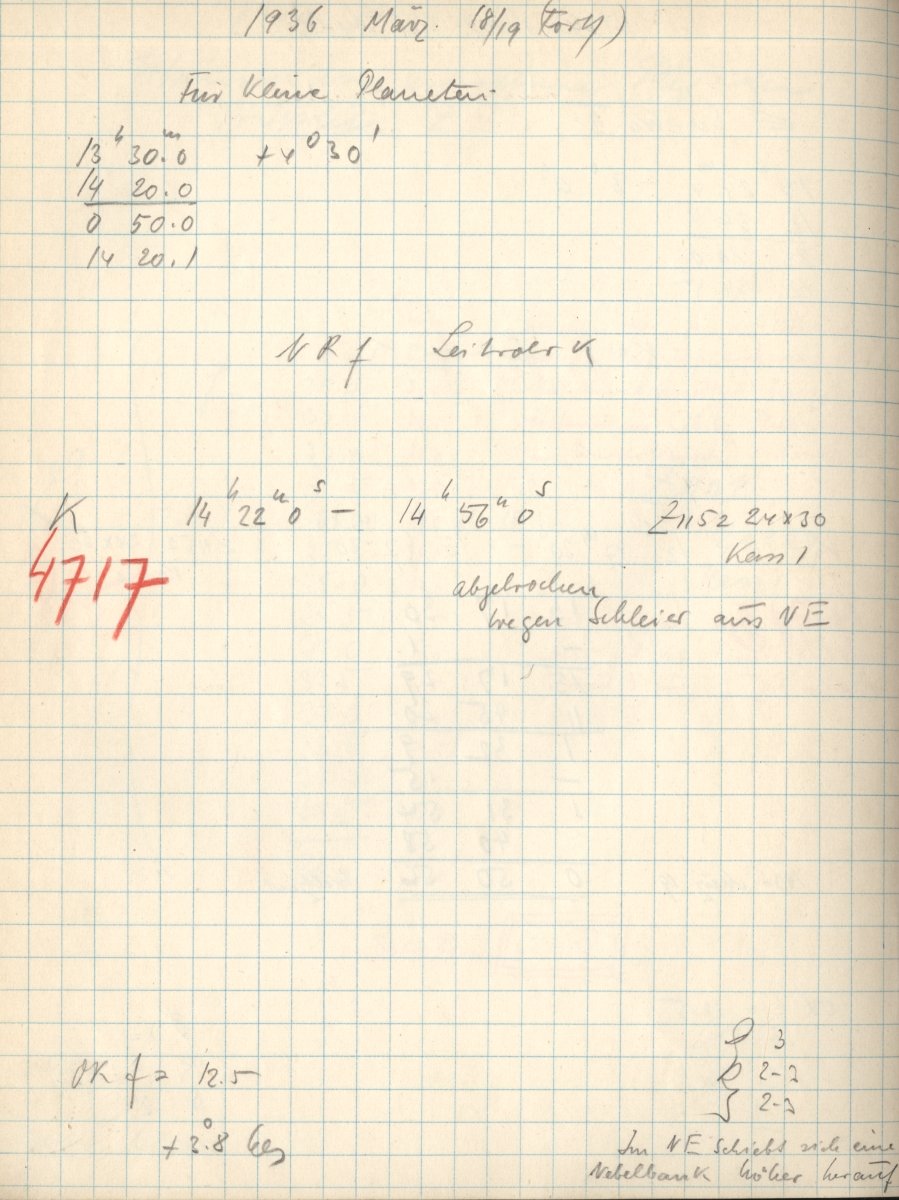 1936 März. 18/19 (Forts)
Für Kleine Planeten
13ʰ 30.ᵐ0 +4°30'
14 20.0
0 50.0
14 20.1
NRf Leitrohr K
K 14ʰ22ᵐ0ˢ – 14ʰ56ᵐ0ˢ 24x30
4717 Kass 1
abgebrochen
wegen Schleier aus NE
OK f = 12.5
+3.°8
3
2-3
2-3
Im NE schiebt sich eine
Nebelbank höher herauf